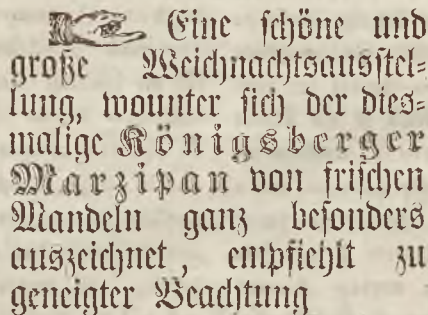 Eine schöne und
große Weichnachtsausstel=
lung, wounter sich der dies=
malige Königsberger
Marzipan von frischen
Mandeln ganz besonders
auszeichnet, empfiehlt zu
geneigter Beachtung